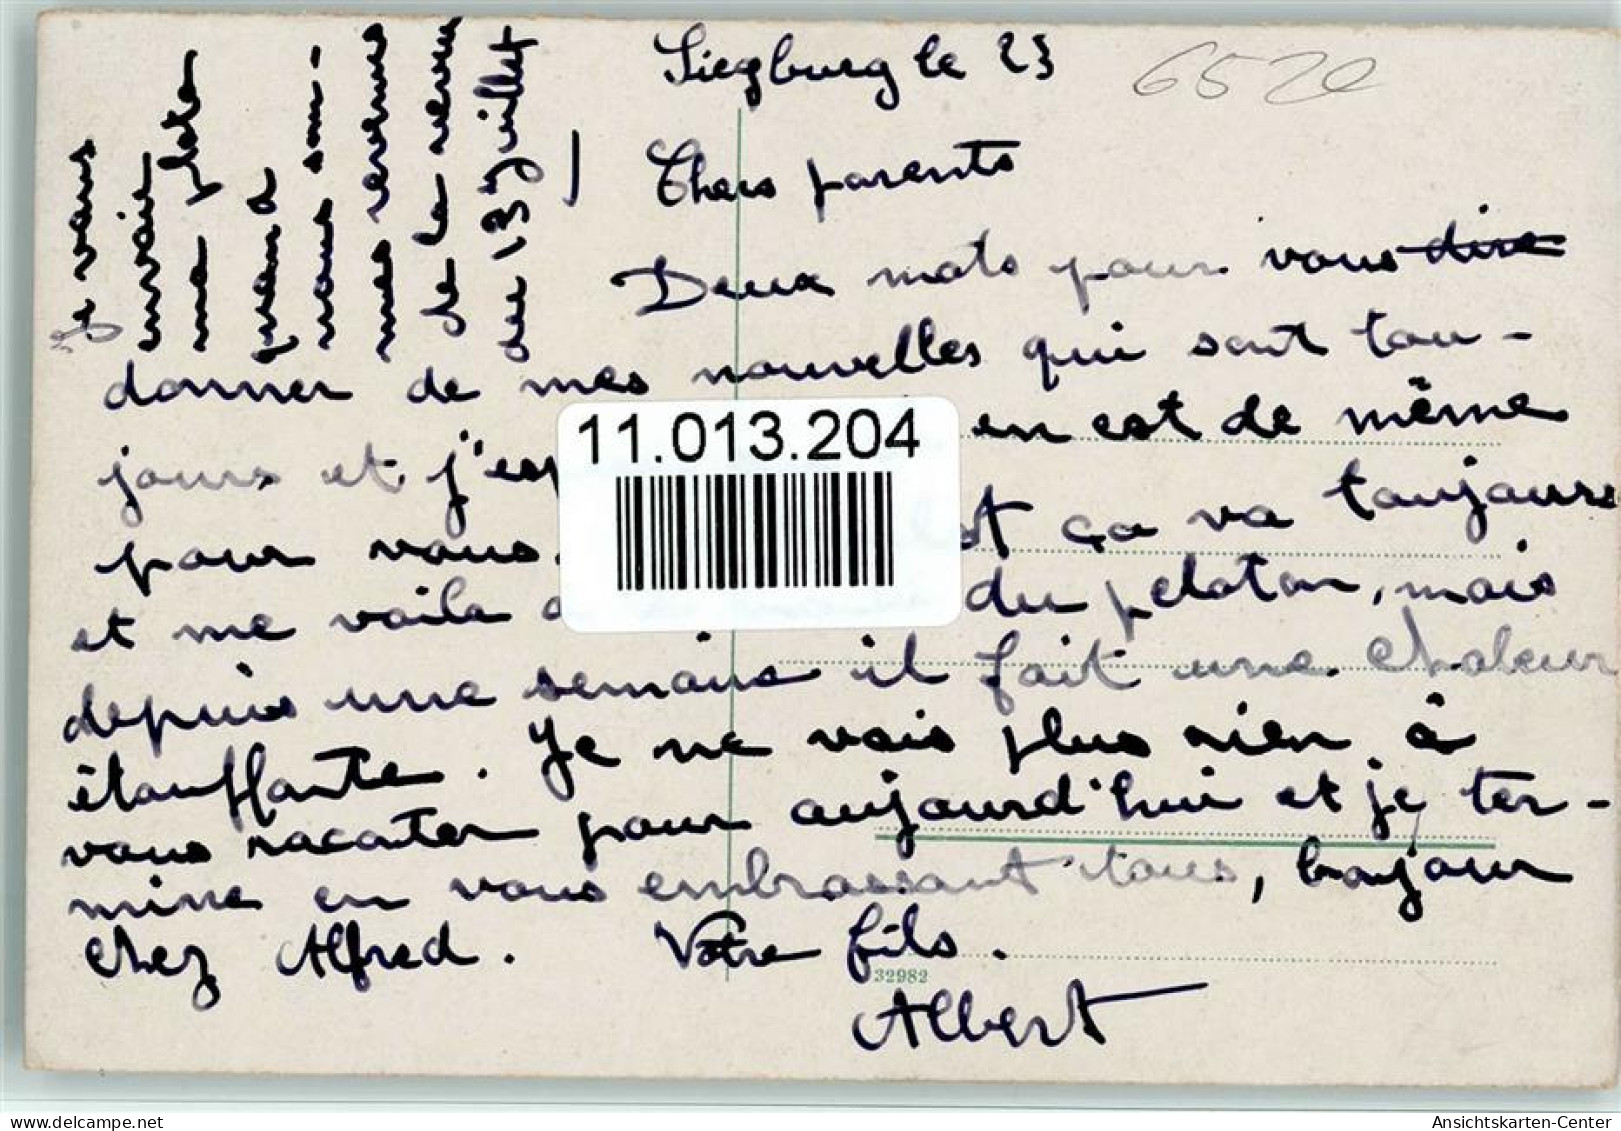 Siegburg le 23
6520
Chers parents
Deux mots pour vous dire
donner de mes nouvelles qui sont tou-
jours et j'esp en est de même
pour vous. ça va toujours
et me voila du peloton, mais
depuis une semaine il fait une chaleur
étouffante. Je ne vois plus rien à
vous raconter pour aujourd'hui et je ter-
mine en vous embrassant tous, bonjour
chez Alfred. Votre fils.
Albert
Je vous
envoie
ma photo
quand
nous som-
mes revenus
de la revue
du 13 Juillet
11.013.204
32982
delcampe.net
Ansichtskarten-Center